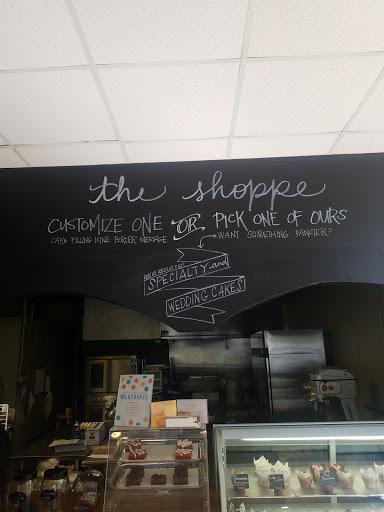 the shoppe
CUSTOMIZE ONE OR PICK ONE OF OURS
CAKE FILLING ICING BORDER MESSAGE
WANT SOMETHING FANCIER?
SPECIALTY and
WEDDING CAKES
MILKSHAKES